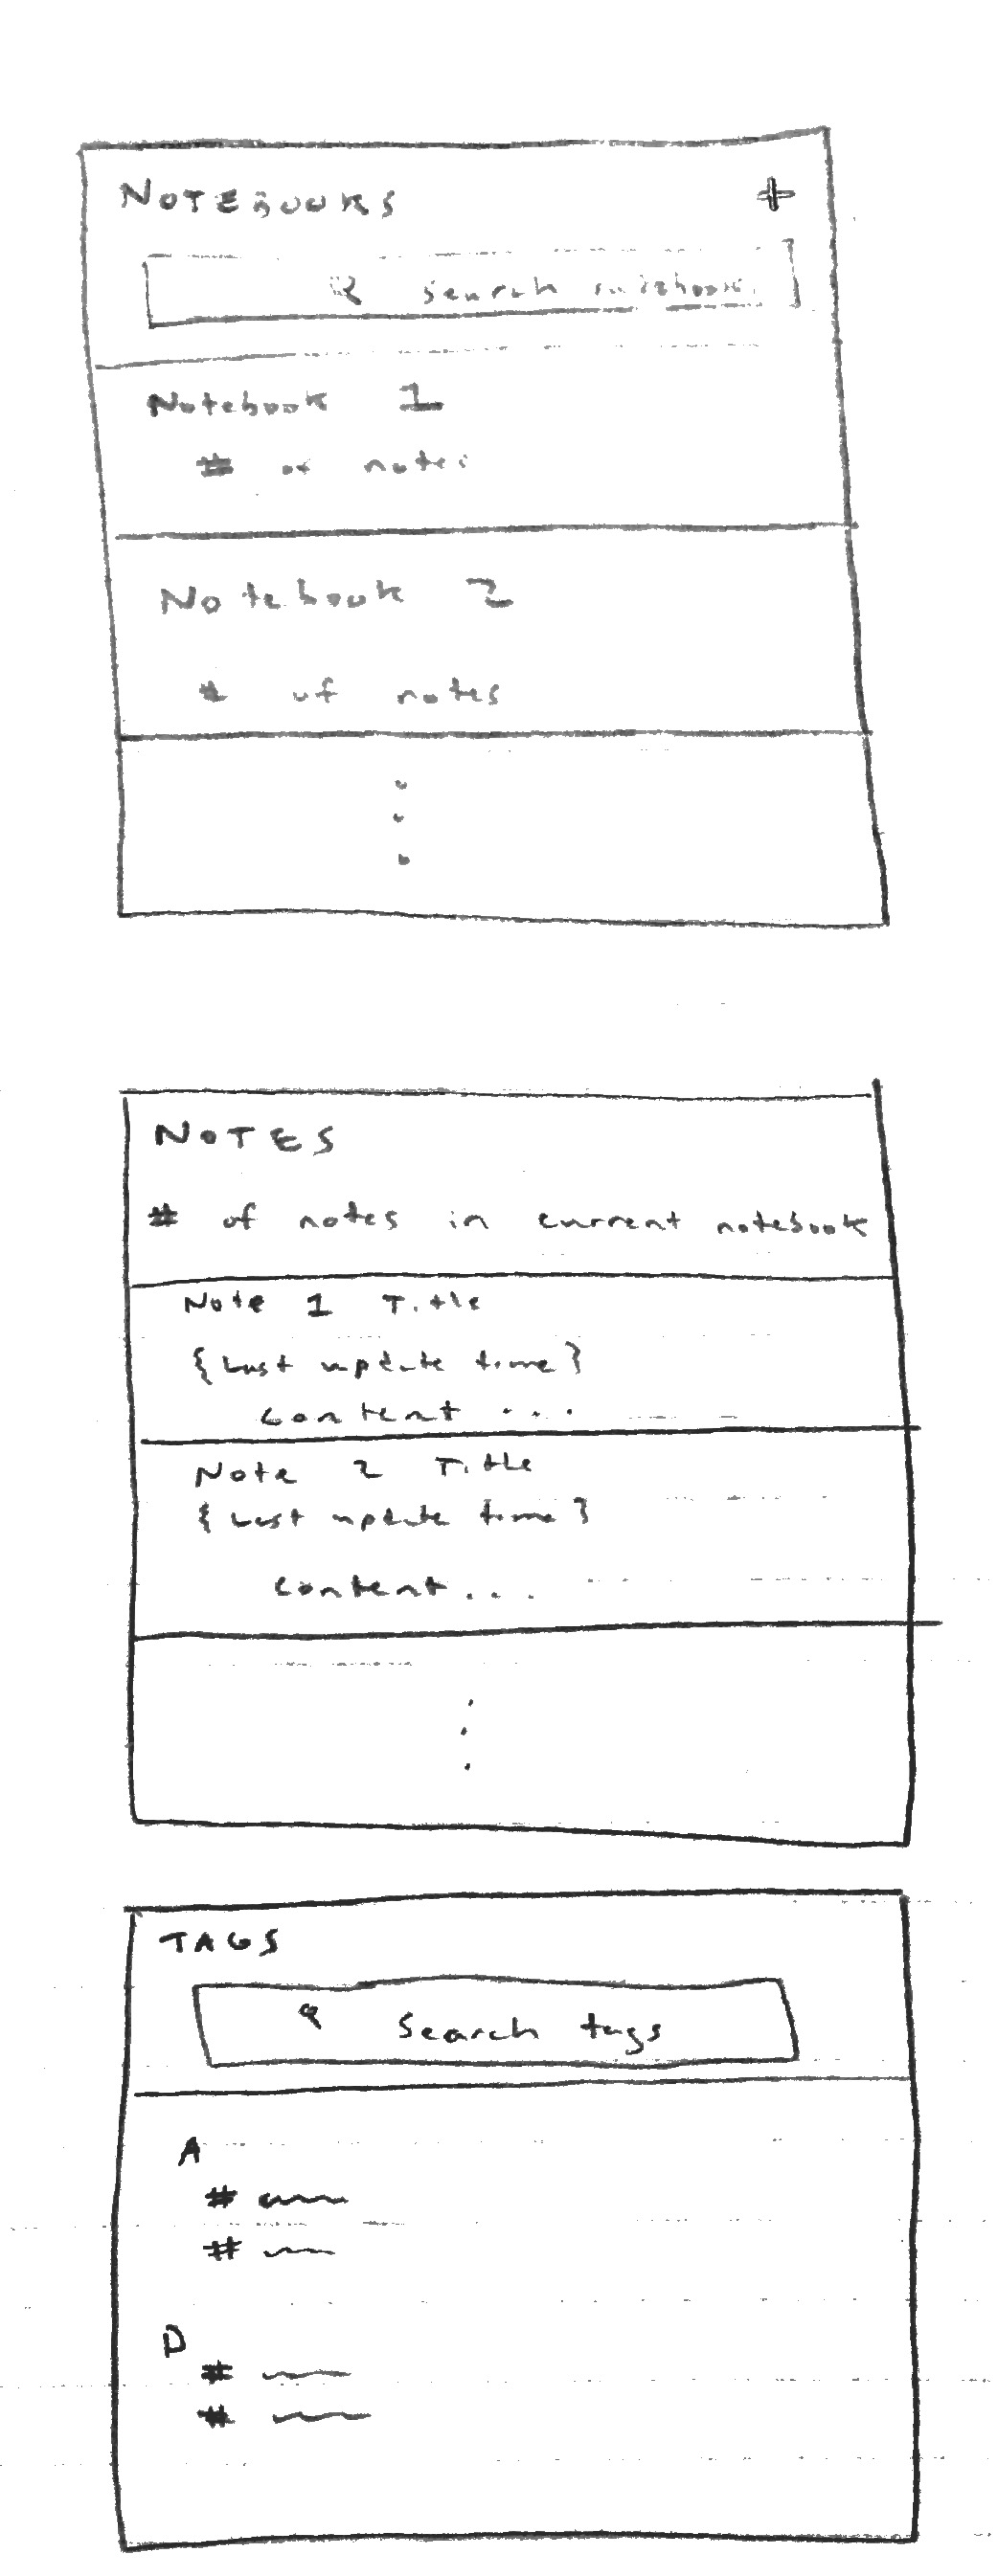 NOTEBOOKS +
Search notebooks
Notebook 1
# of notes
Notebook 2
# of notes
NOTES
# of notes in current notebook
Note 1 Title
{Last update time}
Content ...
Note 2 Title
{Last update time}
Content...
TAGS
Search tags
A
#
#
D
#
#